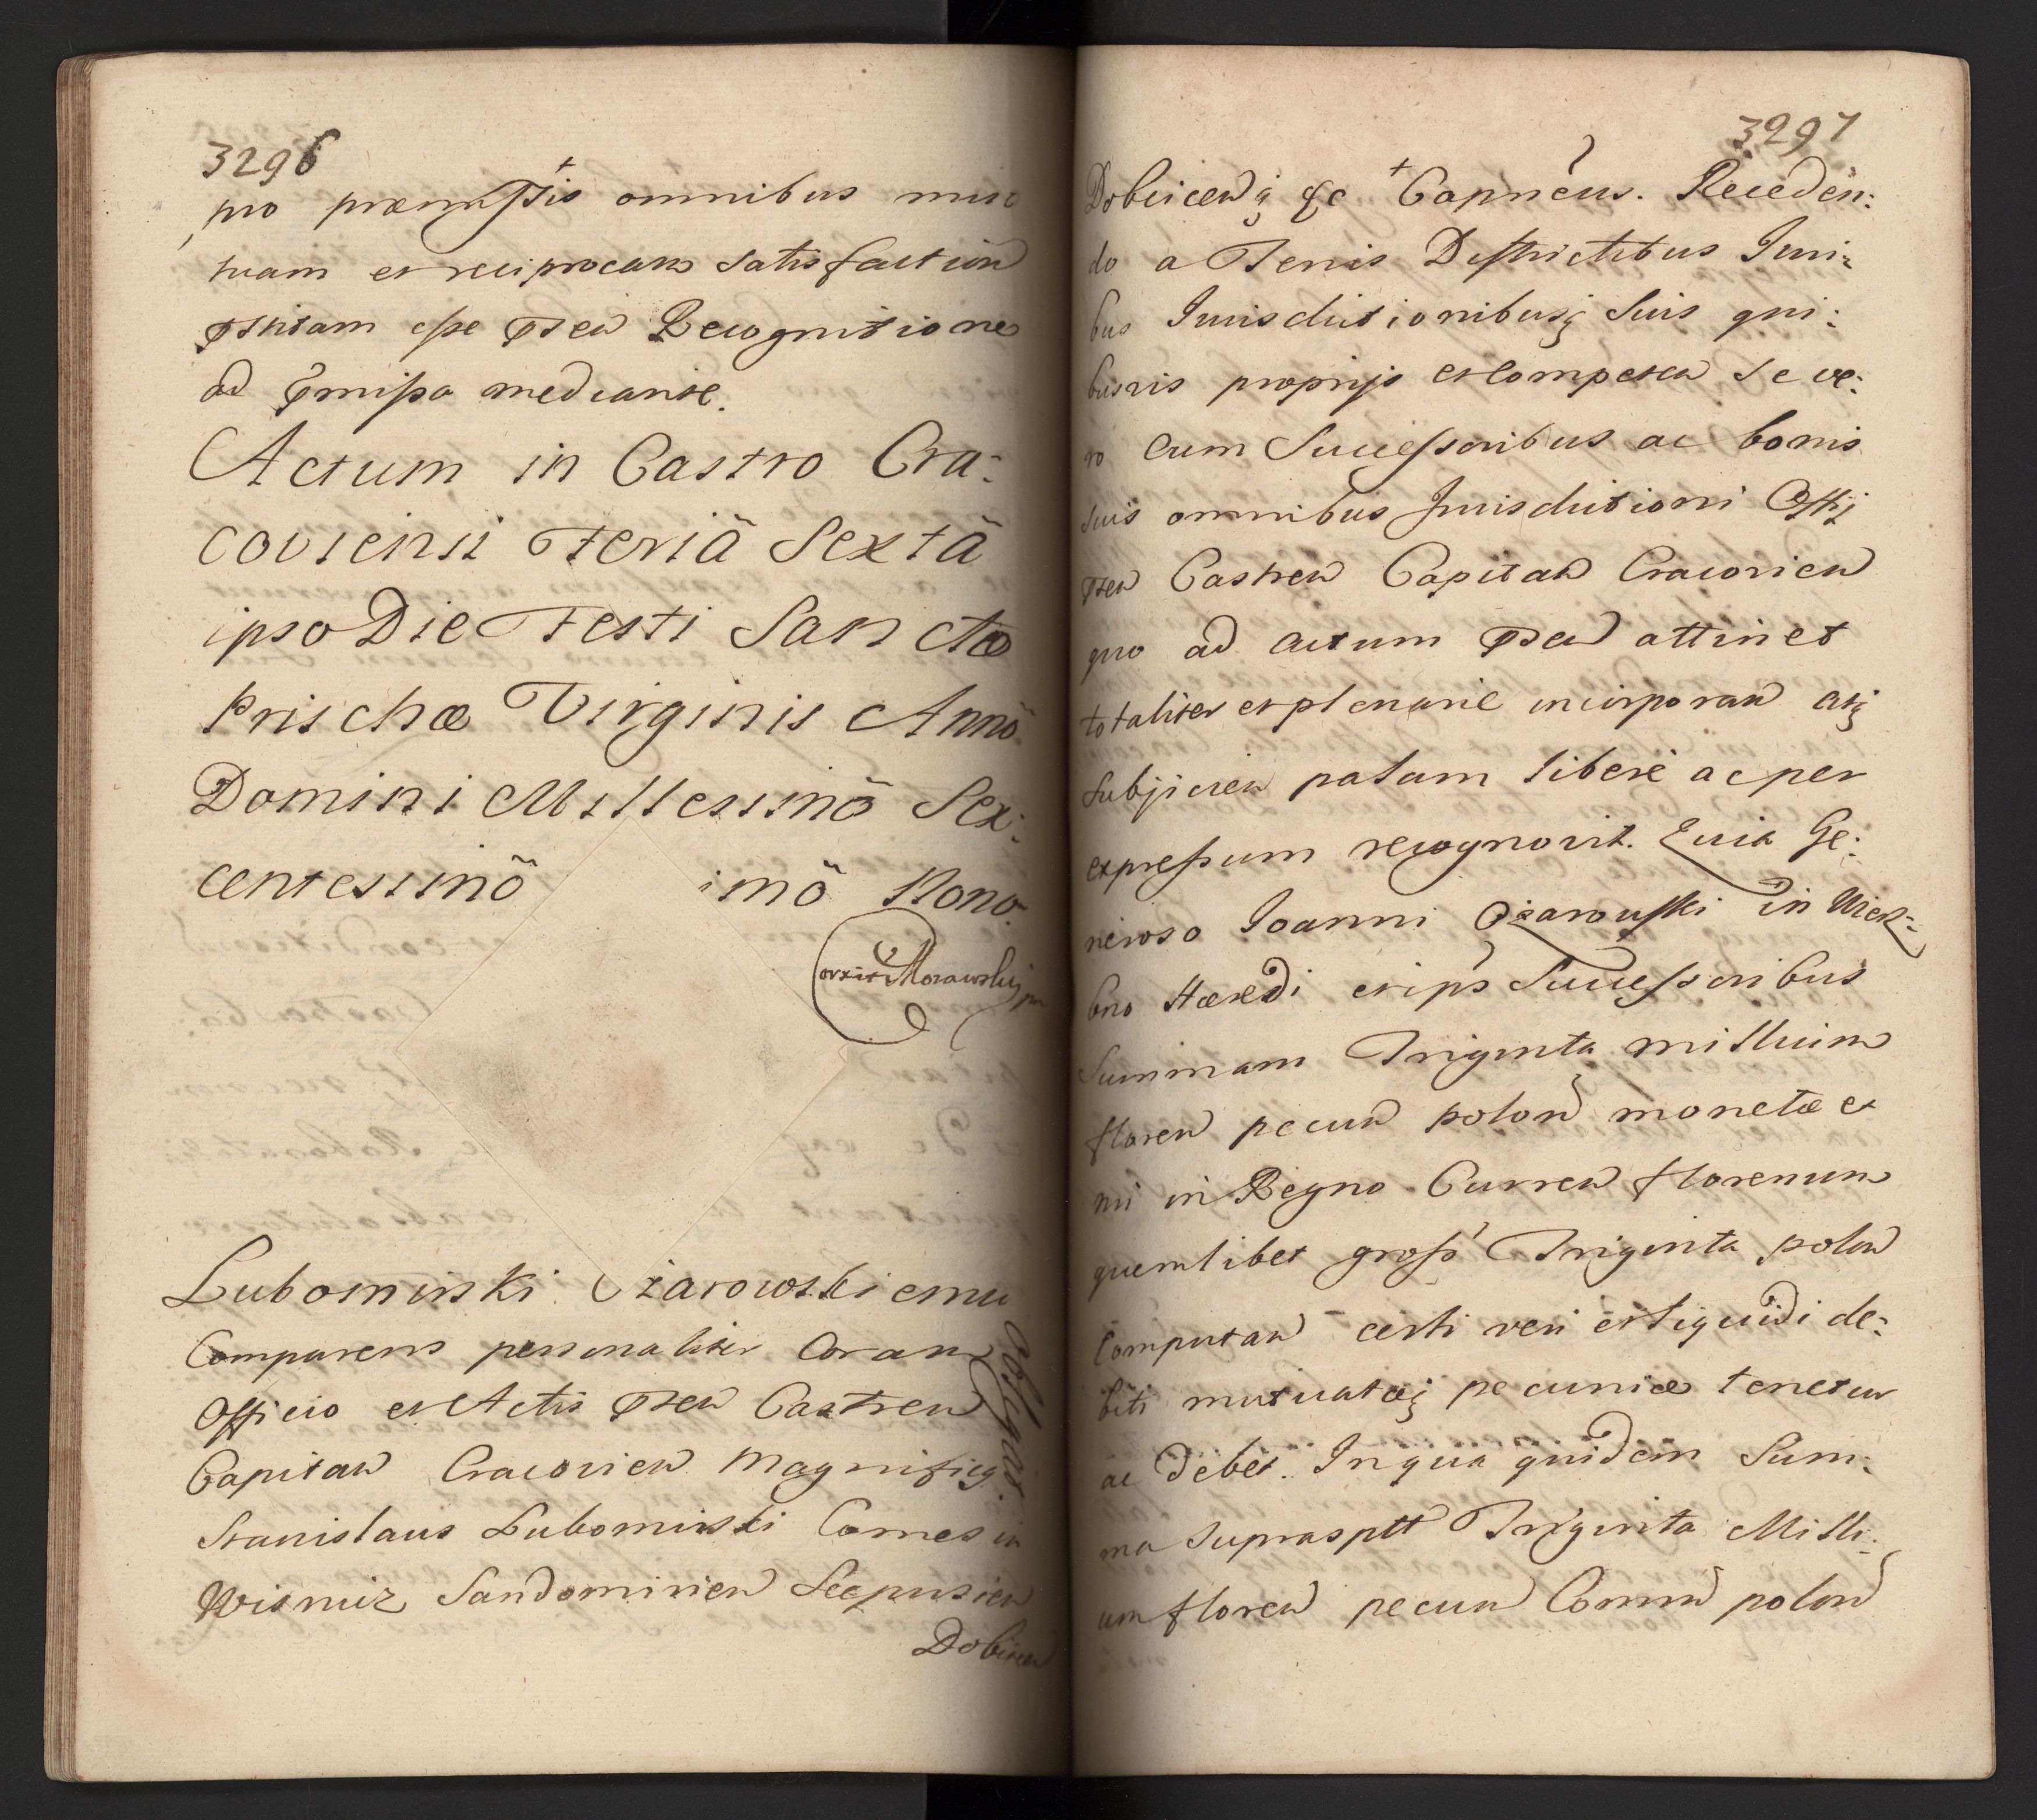 3296
pro præmissis omnibus mu
tuam et reciprocam satisfaction
pntam esse pnten Recognitione
ad pmissa mediante.
Actum in Castro Cra:
coviensi Feriâ Sextâ
ipso Die Festi Sanctæ
Prischæ Virginis Annõ
Domini Millessimõ Sex:
centessimõ imõ Nono.
Corxit Morawski
Lubomirski Ożarowskiemu
Comparens personaliter Coram
Officio et Actis pnten Castren
Capitan Cracovien Magnificq
Stanislaus Lubomirski Comes in
Wisnicz Sandomirien Scepusien
Dobicen
Obligat
3297
Dobcicenq &c Capneus. Receden:
do a Terris Districtibus Juri:
bus Jurisdictionibusq Suis qui:
busvis proprijs et competen Se ve:
ro cum Successoribus ac bonis
suis omnibus Jurisdictioni Offij
pnten Castren Capitan Cracovien
quo ad actum pnten attinet
totaliter et plenarie incorporan atq
Subjicien palam liberè ac per
expressum recognovit. Quia Ge:
neroso Joanni Ożarowski in Wierz:
bno Hæredi et ips Successoribus
Summam Triginta millium
floren pecun polon monetæ et
nri in Regno Curren florenum
quemlibet gross Triginta polon
Computan certi veri et liquidi de:
biti mutuatæq pecuniæ tenetur
ac debet. In qua quidem Sum:
ma suprasptt Triginta Milli:
um floren pecun Comm polon